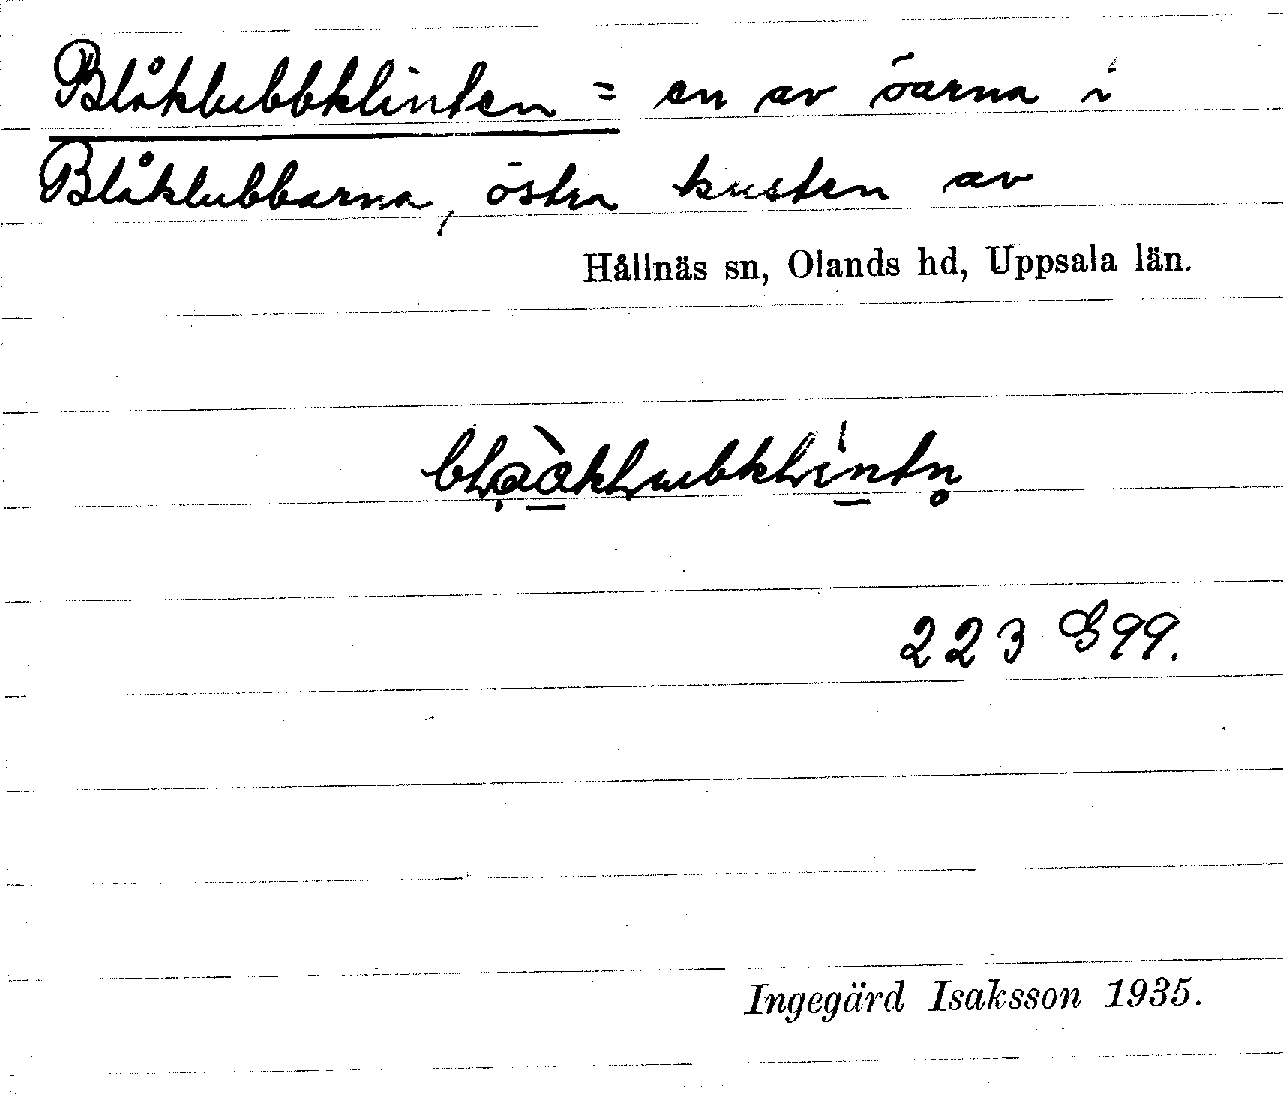 Blåklubbklinten = en av öarna i
Blåklubbarna, östra kusten av
Hållnäs sn, Olands hd, Uppsala län.
223 G99.
Ingegärd Isaksson 1935.